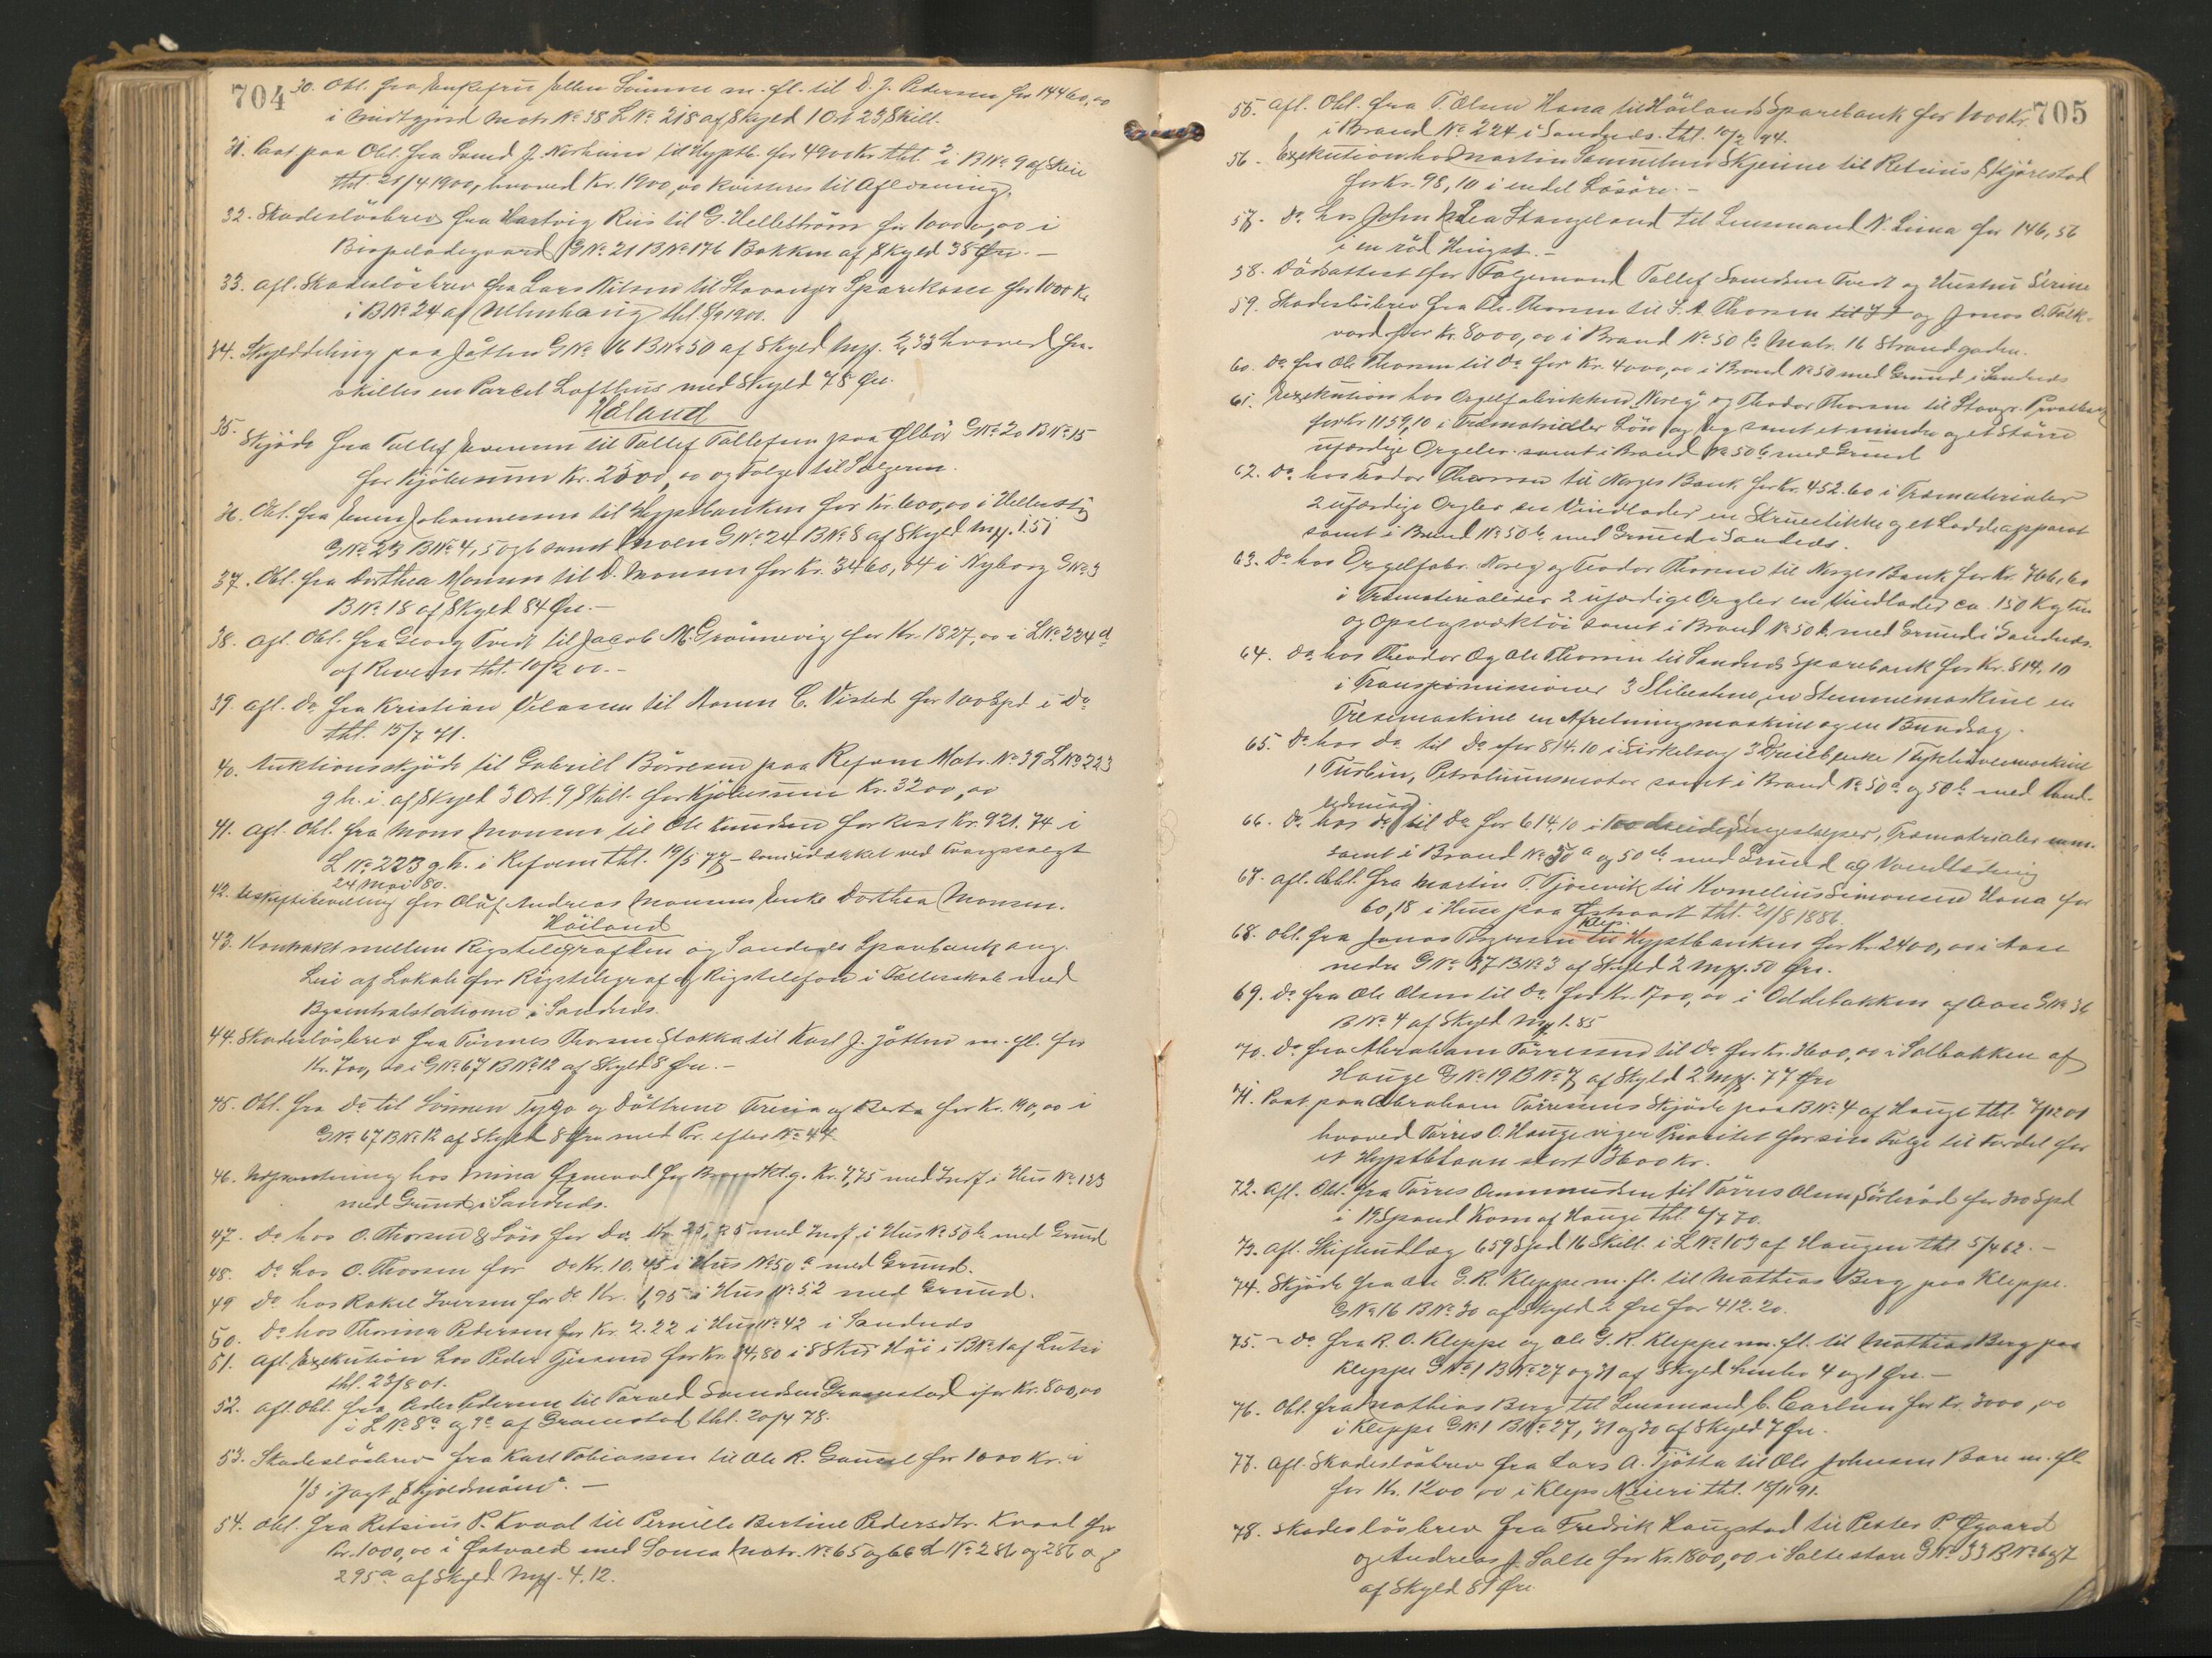 704
30. Obl. fra Enkefru Ellen Sömme m. fl. til D. J. Pedersen for 14460,00
i Midtgjord Matr. No 38 L No 218 af Skyld 1 Ort 23 Skill.
31. Paat paa Obl. fra Svend J. Norheim til Hyptb. for 4900 Kr. thl. i B No 9 af Skeie
thl. 21/4 1900, hvoved Kr. 1900,00 kvitteres til Aflösning.
32. Skadeslösbrev fra Hartvig Riis til G. Hellström for 10000,00 i
Bispeladegaard G No 21 B No 176 Bakken af Skyld 38 Öre. –
33. Afl. Skadeslösbrev fra Lars Nilsen til Stavanger Sparekasse for 1000 Kr.
i B No 24 af thl. 8/9 1900.
34. Skylddeling paa Jåtten G No 16 B No 50 af Skyld Mrk. 2,33 hvoved fra-
skilles en Parcel Lofthus med Skyld 78 Öre.
Håland
35. Skjöde fra Tollef Evensen til Tollef Tollefsen paa Ølbör G No 20 B No 15
for Kjöbesum Kr. 2500,00 og Folge til Sælgeren.
36. Obl. fra Even Johannessen til Hyptbanken for Kr. 600,00 i Hellestö
G No 23 B No 4, 5 og 6 samt G No 24 B No 8 af Skyld Mrk. 1.51
37. Obl. fra Dorthea Monsen til D. Monsen for Kr. 3460,84 i Nyborg G No 3
B No 18 af Skyld 84 Öre. –
38. Afl. Obl. fra Georg Tvedt til Jacob M. Grönnevig for Kr. 1827,00 i L No 224 d
af Reveim thl. 10/2 00. –
39. Afl. Do fra Kristian til C. Visted for 100 Spd i Do
thl. 15/7 41.
40. Auktionsskjöde til Gabriel Börresen paa Refsnes Matr. No 39 L No 223
g.h. i af Skyld 3 Ort 9 Skill. for Kjöbesum Kr. 3200,00
41. Afl. Obl. fra Mons Monsen til Ole Knudsen for Rest Kr. 921.74 i
L No 223 g.h. i Refsnes thl. 19/5 77 – ved Tvangssalgt
24 Mai 80.
42. Uskiftebevilling for Oluf Andreas Monsens Enke Dorthea Monsen.
Höiland
43. Kontrakt mellem Rigstelegrafen og Sandnes Sparebank ang.
Leie af Lokale for Rigstelegraf og Rigstelefon i Fællesskab med
Bycentralstationen i Sandnes.
44. Skadeslösbrev fra Tönnes Thorsen Stokka til Karl J. Jåtten m. fl. for
Kr. 700,00 i G No 67 B No 12 af Skyld 8 Öre. –
45. Obl. fra Do til Sönnen Tygo og Döttrene Teresia og Berta for Kr. 190,00 i
G No 67 B No 12 af Skyld 8 Öre med Pr. efter No 44
46. Udpantning hos Mina for Brandktg. Kr. 7,75 med Inrf. i Hus No 123
med Grund i Sandnes.
47. Do hos O. Thorsen & Sön for Do Kr. 25,25 med Inrf. i Hus No 50 b med Grund
48. Do hos O. Thorsen for Do Kr. 10.45 i Hus No 50 a med Grund.
49 Do hos Rakel Iversen for Do Kr. 1,95 i Hus No 52 med Grund.
50. Do hos Thorina Pedersen for Kr. 2.22 i Hus No 42 i Sandnes
51. Afl. Exekution hos Peder for Kr. 84,80 i 8 Skr Höi i B No 1 af Lutsi
thl. 23/8 01.
52. Afl. Obl. fra Peder Pedersen til Torvald Svendsen Gramstad for Kr. 800,00
i L No 8 a og 9 a af Gramstad thl. 20/4 78.
53. Skadeslösbrev fra Karl Tobiassen til Ole R. Gausel for 1000 Kr. i
1/3 i Jagt "Skjoldmöen". –
54. Obl. fra Retsius P. Kvaal til Pernille Bertine Pedersdtr. Kvaal for
Kr. 1000,00 i Østvold med Soma Matr. No 65 og 66 L No 286 og 286 a og
295 a af Skyld Mrk. 4.12.
705
55. Afl. Obl. fra T. Olsen Hana til Höilands Sparebank for 1000 Kr.
i Brand No 224 i Sandnes. thl. 10/2 94.
56. Exekution hos Martin Samuelsen Skjeine til Retsius Skjörestad
for Kr. 98,10 i endel Lösöre. –
57. Do hos John & Lea Stangeland til Lensmand N. Lima for 146,56
i en röd Hingst. –
58. Dödsattest for Folgemand Tollef Svendsen Tvedt og Hustru Serine
59. Skadeslösbrev fra Th. Thorsen til S. A. Thorsen til J J og Jonas O. Folk-
vord for Kr. 8000,00 i Brand No 50 b Matr. 16 Strandgaden.
60. Do fra Ole Thorsen til Do for Kr. 4000,00 i Brand No 50 med Grund i Sandnes
61. Exekution hos Orgelfabrikken "Noreg" og Theodor Thorsen til Stavgr. Privatbank
for Kr. 1159,10 i Træmaterialer Lön og samt et mindre og et Större
ufærdige Orgeler samt i Brand No 50 b med Grund
62. Do hos Teodor Thorsen til Norges Bank for Kr. 452.60 i Træmaterialer
2 ufærdige Orgler en Vindlader en Skruestikke og et Loddeapparat
samt i Brand No 50 b med Grund i Sandnes.
63. Do hos Orgelfabr. Noreg og Teodor Thorsen til Norges Bank for Kr. 766,60
i Træmaterialier 2 ufærdige Orgler en Vindlader ca. 150 Kg Tin
og Opslagsværktöi samt i Brand No 50 b med Grund i Sandnes.
64. Do hos Theodor og Ole Thorsen til Sandnes Sparebank for Kr. 814.10
i Transmissioner 3 Slibestene, en Stemmemaskine en
Fresemaskine en Afretningsmaskine og en Bundsag.
65. Do hos Do til Do for 814.10 i Sirkelsag 3 Dreiebænke 1 Tykhövlemaskine
1 Turbin, Petroliumsmotor samt i Brand No 50 a og 50 b med Vand-
ledning.
66. Do hos Do til Do for 614.10 i 100 Sengestolper, Træmaterialer m.m.
samt i Brand No 50 a og 50 b med Grund og Vandledning
67. Afl. Obl. fra Martin T. Tjosevik til Kornelius Simonsen Hana for
60,18 i Huse paa Østraat thl. 21/8 1886.
Klep.
68. Obl. fra Jonas Torgersen til Hyptbanken for Kr. 2400,00 i Aase
nedre G No 37 B No 3 af Skyld 2 Mrk. 50 Öre.
69. Do fra Ole Olsen til Do for Kr. 1700,00 i Oddebakken af Aase G No 36
B No 4 af Skyld Mrk 1.85
70. Do fra Abraham Törresen til Do for Kr. 3600,00 i Solbakken af
Hauge G No 19 B No 7 af Skyld 2 Mrk. 77 Öre
71. Paat paa Abraham Törresens Skjöde paa B No 4 af Hauge thl. 7/12 01
hvoved Törres O. Hauge viger Prioritet for sin Folge til Fordel for
et Hyptbklaan stort 3600 Kr.
72. Afl. Obl. fra Törres Ommundsen til Törres Olsen Sörbröd for 300 Spd
i 19 Spand Korn af Hauge thl. 6/7 70.
73. Afl. Skifteudlæg 659 Spd 16 Skill. i L No 103 af Haugen thl 5/4 62. –
74. Skjöde fra Ole G. R. Kleppe m. fl. til Mathias Berg paa Kleppe.
G No 16 B No 30 af Skyld 2 Öre for 412.20.
75. – Do fra R. O. Kleppe og Ole G. R. Kleppe m. fl. til Mathias Berg paa
Kleppe G No 1 B No 27 og 31 af Skyld henhv 4 og 1 Öre. –
76. Obl. fra Mathias Berg til Lensmand C. Carlsen for Kr. 3000,00
i Kleppe G No 1 B No 27, 31 og 30 af Skyld 7 Öre.
77. Afl. Skadeslösbrev fra Lars A. Tjötta til Ole Johnsen Bore m. fl.
for Kr. 1200,00 i Kleps Meieri thl. 18/11 91.
78. Skadeslösbrev fra Fredrik Haugstad til Peder P. Øgaard
og Andreas J. Salte for Kr. 1800,00 i Saltestøa G No 33 B No 6 og 7
af Skyld 81 Öre